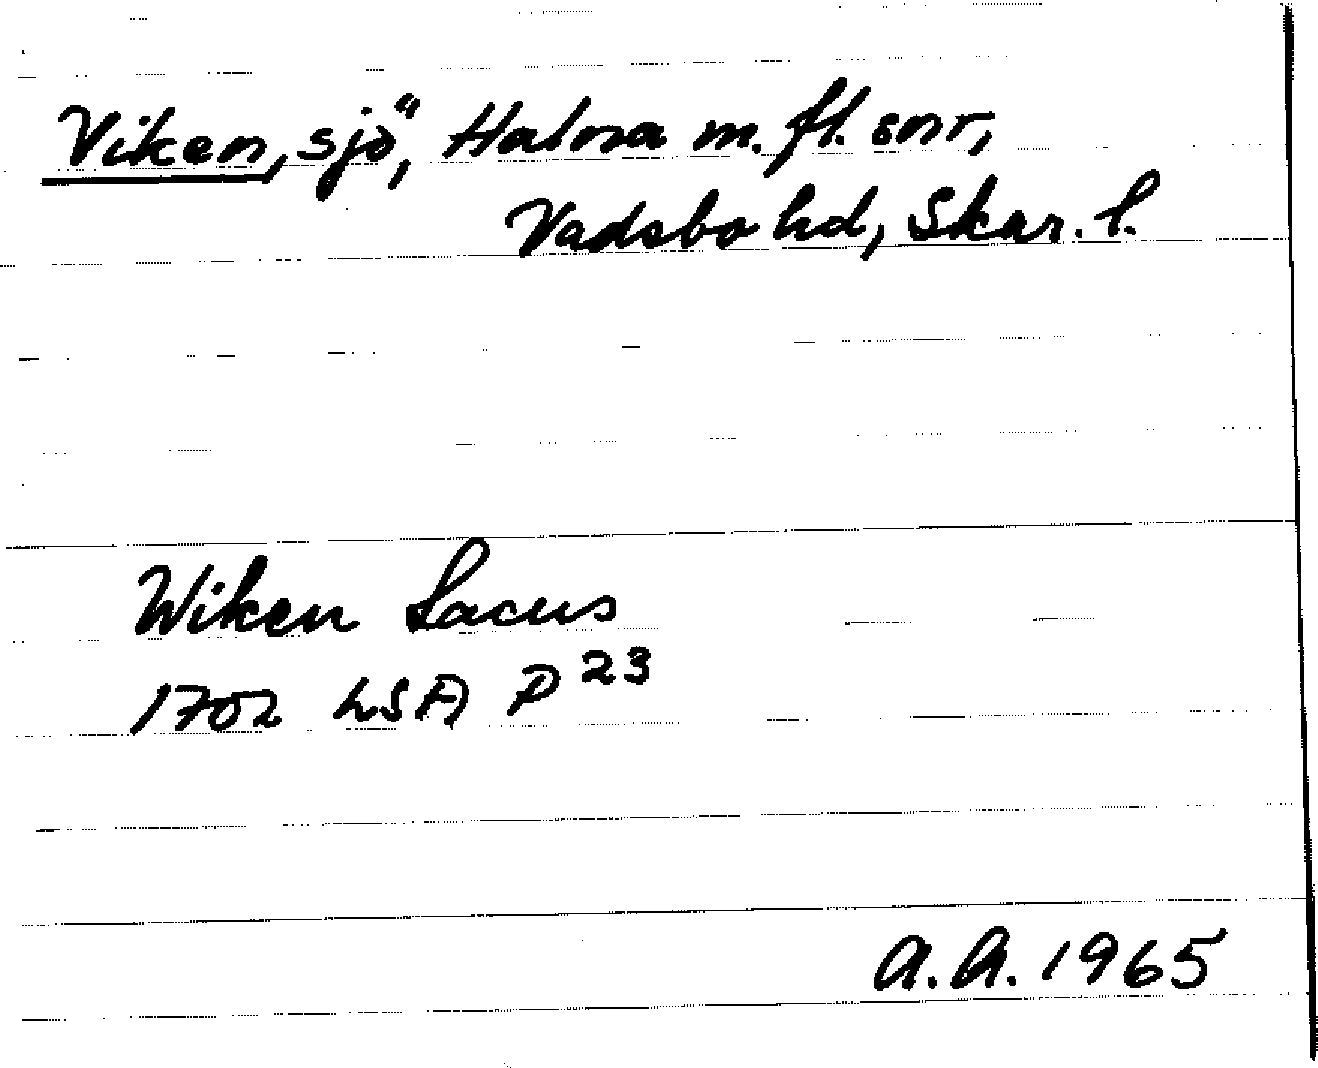 Viken, sjö, Halna m. fl. snr,
Vadsbo hd, Skar. l.
Wiken Lacus
1702 LSA P 23
A.A. 1965